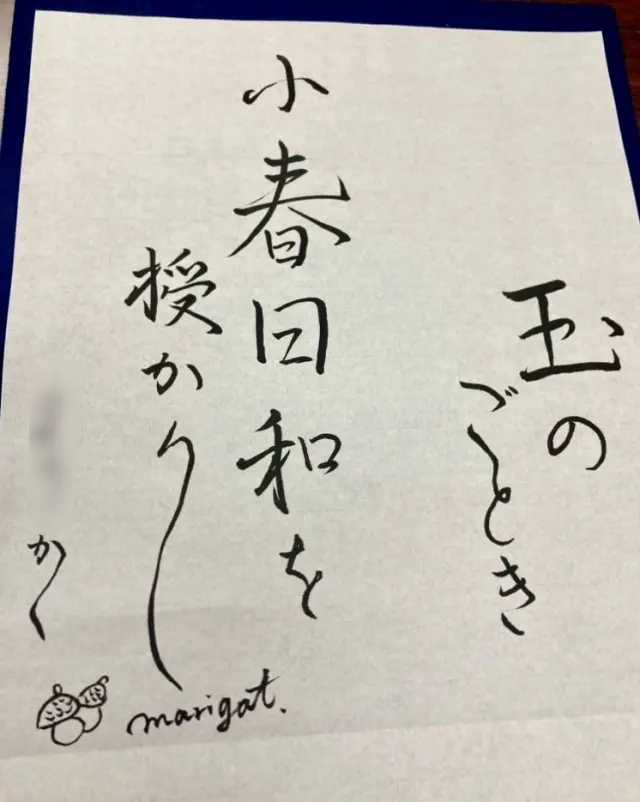 玉の
ごとき
小春日和を
授かりし
かく
marigat.